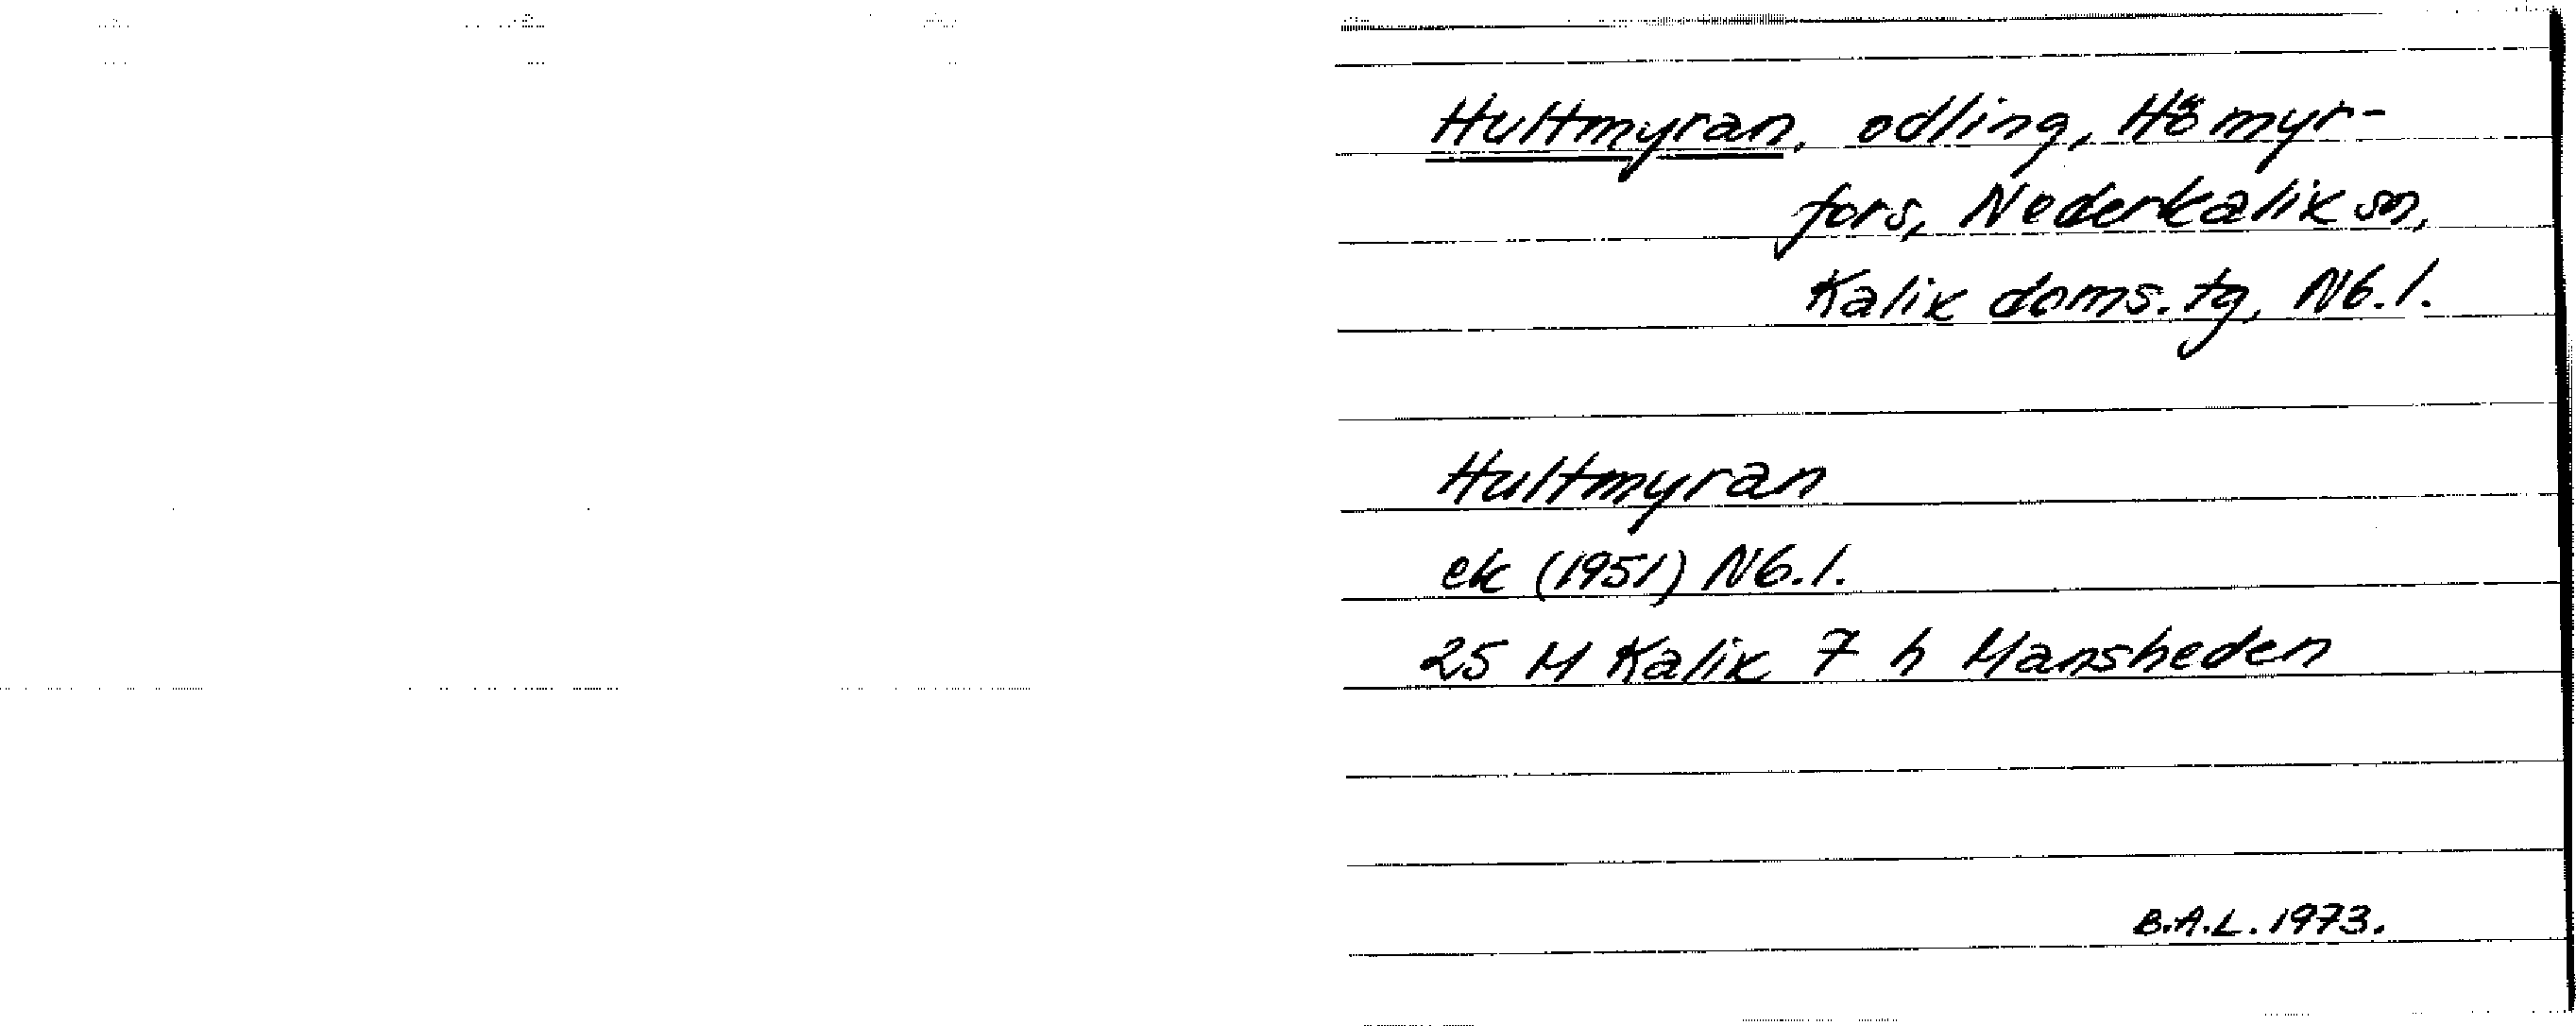 Hultmyran, odling, Hömyr-
fors, Nederkalix sn,
Kalix doms.tg, Nb.l.
Hultmyran
ek (1951) Nb.l.
25 M Kalix 7 h Mansheden
B.A.L. 1973.